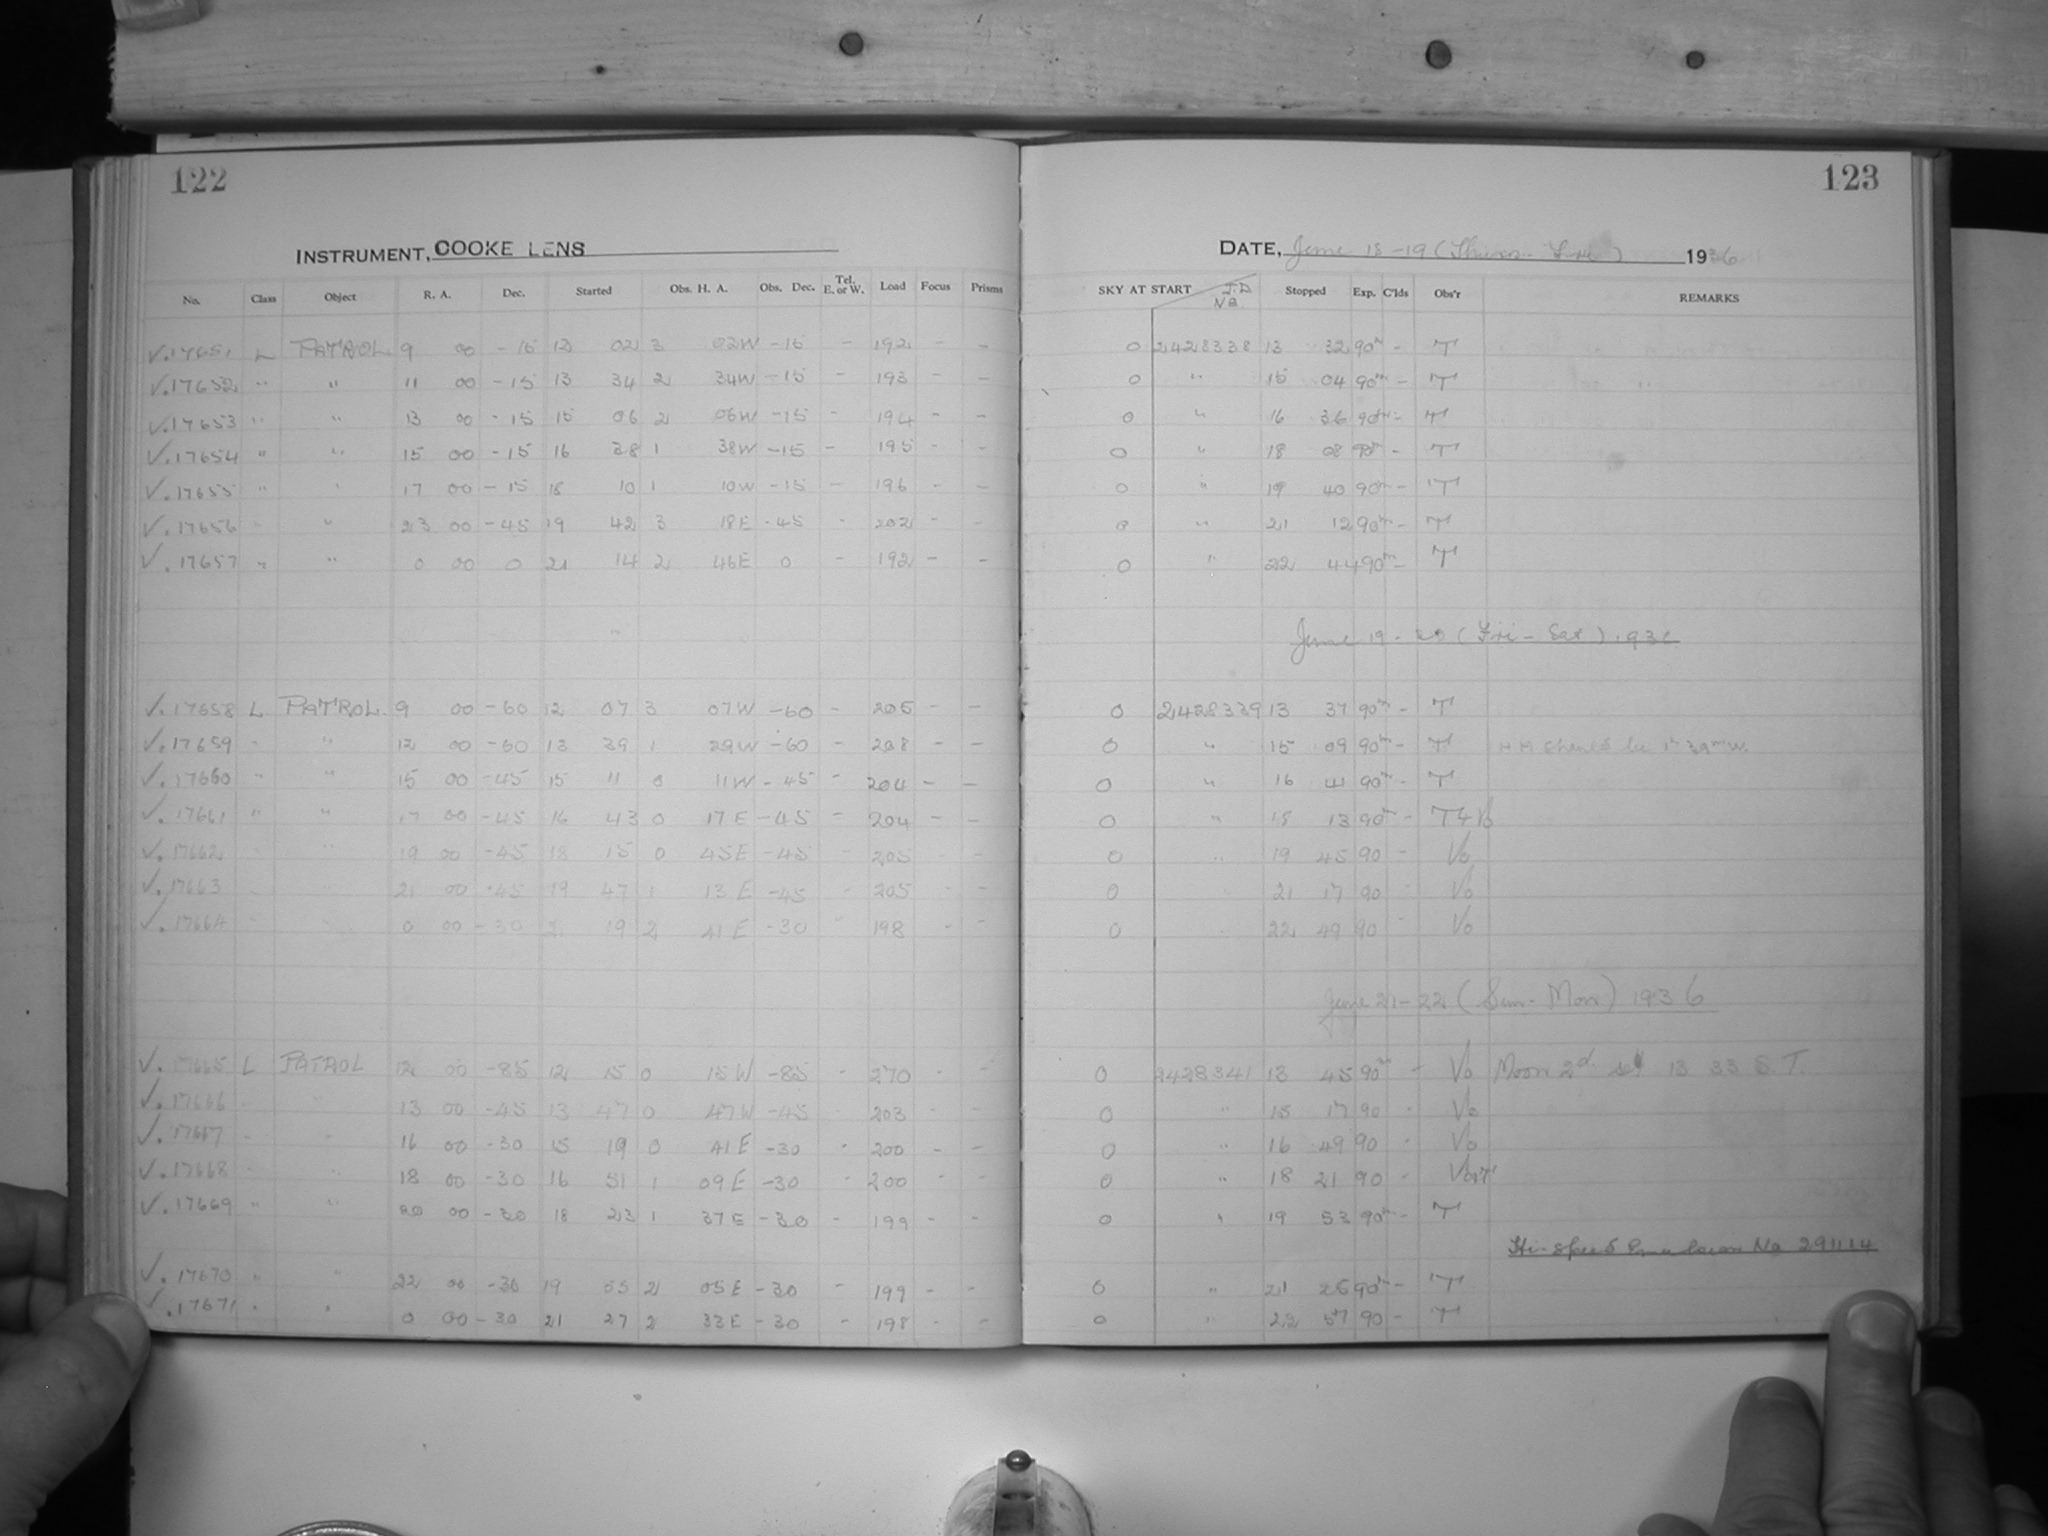 122
INSTRUMENT, COOKE LENS
No. Class Object R. A. Dec. Started Obs. H. A. Obs. Dec. Tel. E. or W. Load Focus Prisms
√.17651 L PATROL 9 00 -15 12 02 3 02W -15 - 192 - -
√.17652 " " 11 00 -15 13 34 2 34W -15 - 193 - -
√.17653 " " 13 00 -15 15 06 2 06W -15 - 194 - -
√.17654 " " 15 00 -15 16 38 1 38W -15 - 195 - -
√.17655 " " 17 00 -15 18 10 1 10W -15 - 196 - -
√.17656 " " 23 00 -45 19 42 3 18E -45 - 202 - -
√.17657 " " 0 00 0 21 14 2 46E 0 - 192 - -
√.17658 L PATROL 9 00 -60 12 07 3 07W -60 - 205 - -
√.17659 " " 12 00 -60 13 39 1 29W -60 - 208 - -
√.17660 " " 15 00 -45 15 11 0 11W -45 - 204 - -
√.17661 " " 17 00 -45 16 43 0 17E -45 - 204 - -
√.17662 " " 19 00 -45 18 15 0 45E -45 - 205 - -
√.17663 " " 21 00 -45 19 47 1 13E -45 - 205 - -
√.17664 " " 0 00 -30 21 19 2 41E -30 " 198 - -
√.17665 L PATROL 12 00 -85 12 15 0 15W -85 - 270 - -
√.17666 " " 13 00 -45 13 47 0 47W -45 - 203 - -
√.17667 " " 16 00 -30 15 19 0 41E -30 - 200 - -
√.17668 " " 18 00 -30 16 51 1 09E -30 - 200 - -
√.17669 " " 20 00 -30 18 23 1 37E -30 - 199 - -
√.17670 " " 22 00 -30 19 55 2 05E -30 - 199 - -
√.17671 " " 0 00 -30 21 27 2 33E -30 - 198 - -
123
DATE, June 18-19 (Thurs-Fri) 1936
SKY AT START J.D. No. Stopped Exp. C'lds Obs'r REMARKS
0 2428338 13 32 90m - T
0 " 15 04 90m - T
0 " 16 36 90m - T
0 " 18 08 90m - T
0 " 19 40 90m - T
0 " 21 12 90m - T
0 " 22 44 90m - T
June 19-20 (Fri-Sat) 1936
0 2428339 13 37 90m - T
0 " 15 09 90m - T HA should be 1h 39m W.
0 " 16 41 90m - T
0 " 18 13 90m - T & Vo
0 " 19 45 90 - Vo
0 " 21 17 90 - Vo
0 " 22 49 90 - Vo
June 21-22 (Sun-Mon) 1936
0 2428341 13 45 90m - Vo Moon 2d set 13 33 S.T.
0 " 15 17 90 - Vo
0 " 16 49 90 - Vo
0 " 18 21 90 - Vo & T
0 " 19 53 90m - T
Hi-Speed Emulsion No 291114
0 " 21 25 90m - T
0 " 22 57 90 - T